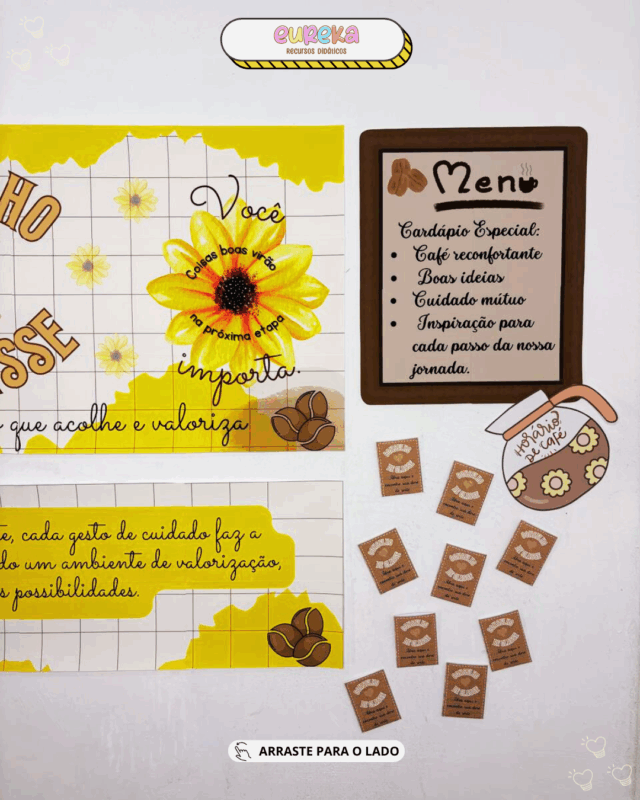 eureka
RECURSOS DIDÁTICOS
HO
SSE
Você
Coisas boas virão
na próxima etapa
importa.
que acolhe e valoriza
Menu
Cardápio Especial:
• Café reconfortante
• Boas ideias
• Cuidado mútuo
• Inspiração para
cada passo da nossa
jornada.
Horário
de café
e, cada gesto de cuidado faz a
do um ambiente de valorização,
s possibilidades.
ARRASTE PARA O LADO